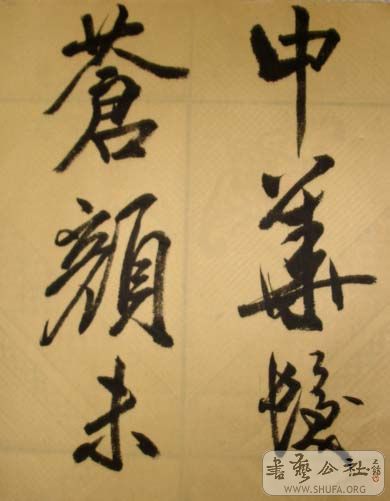 中華
蒼顏未
書藝公社
WWW.SHUFA.ORG